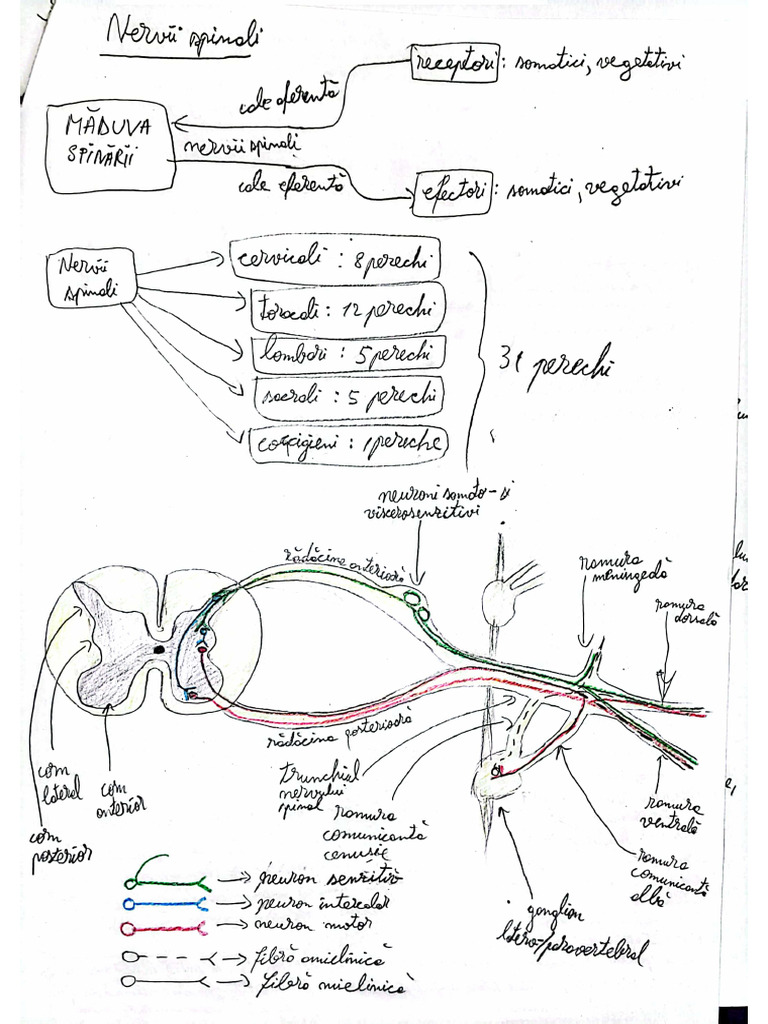 Nervii spinali
receptori : somatici, vegetativi
cale aferentă
MĂDUVA
SPINĂRII
nervii spinali
cale eferentă
efectori : somatici, vegetativi
Nervii
spinali
cervicali : 8 perechi
toracali : 12 perechi
lombari : 5 perechi
sacrali : 5 perechi
coccigieni : 1 pereche
31 perechi
neuroni somato- și
viscerosenzitivi
rădăcina anterioară
ramura
meningeală
ramura
dorsală
rădăcina posterioară
corn
lateral
corn
anterior
corn
posterior
trunchiul
nervului
spinal
ramura
comunicantă
cenușie
ramura
ventrală
ramura
comunicantă
albă
ganglion
latero-/paravertebral
→ neuron senzitiv
→ neuron intercalar
→ neuron motor
→ fibră amielinică
→ fibră mielinică